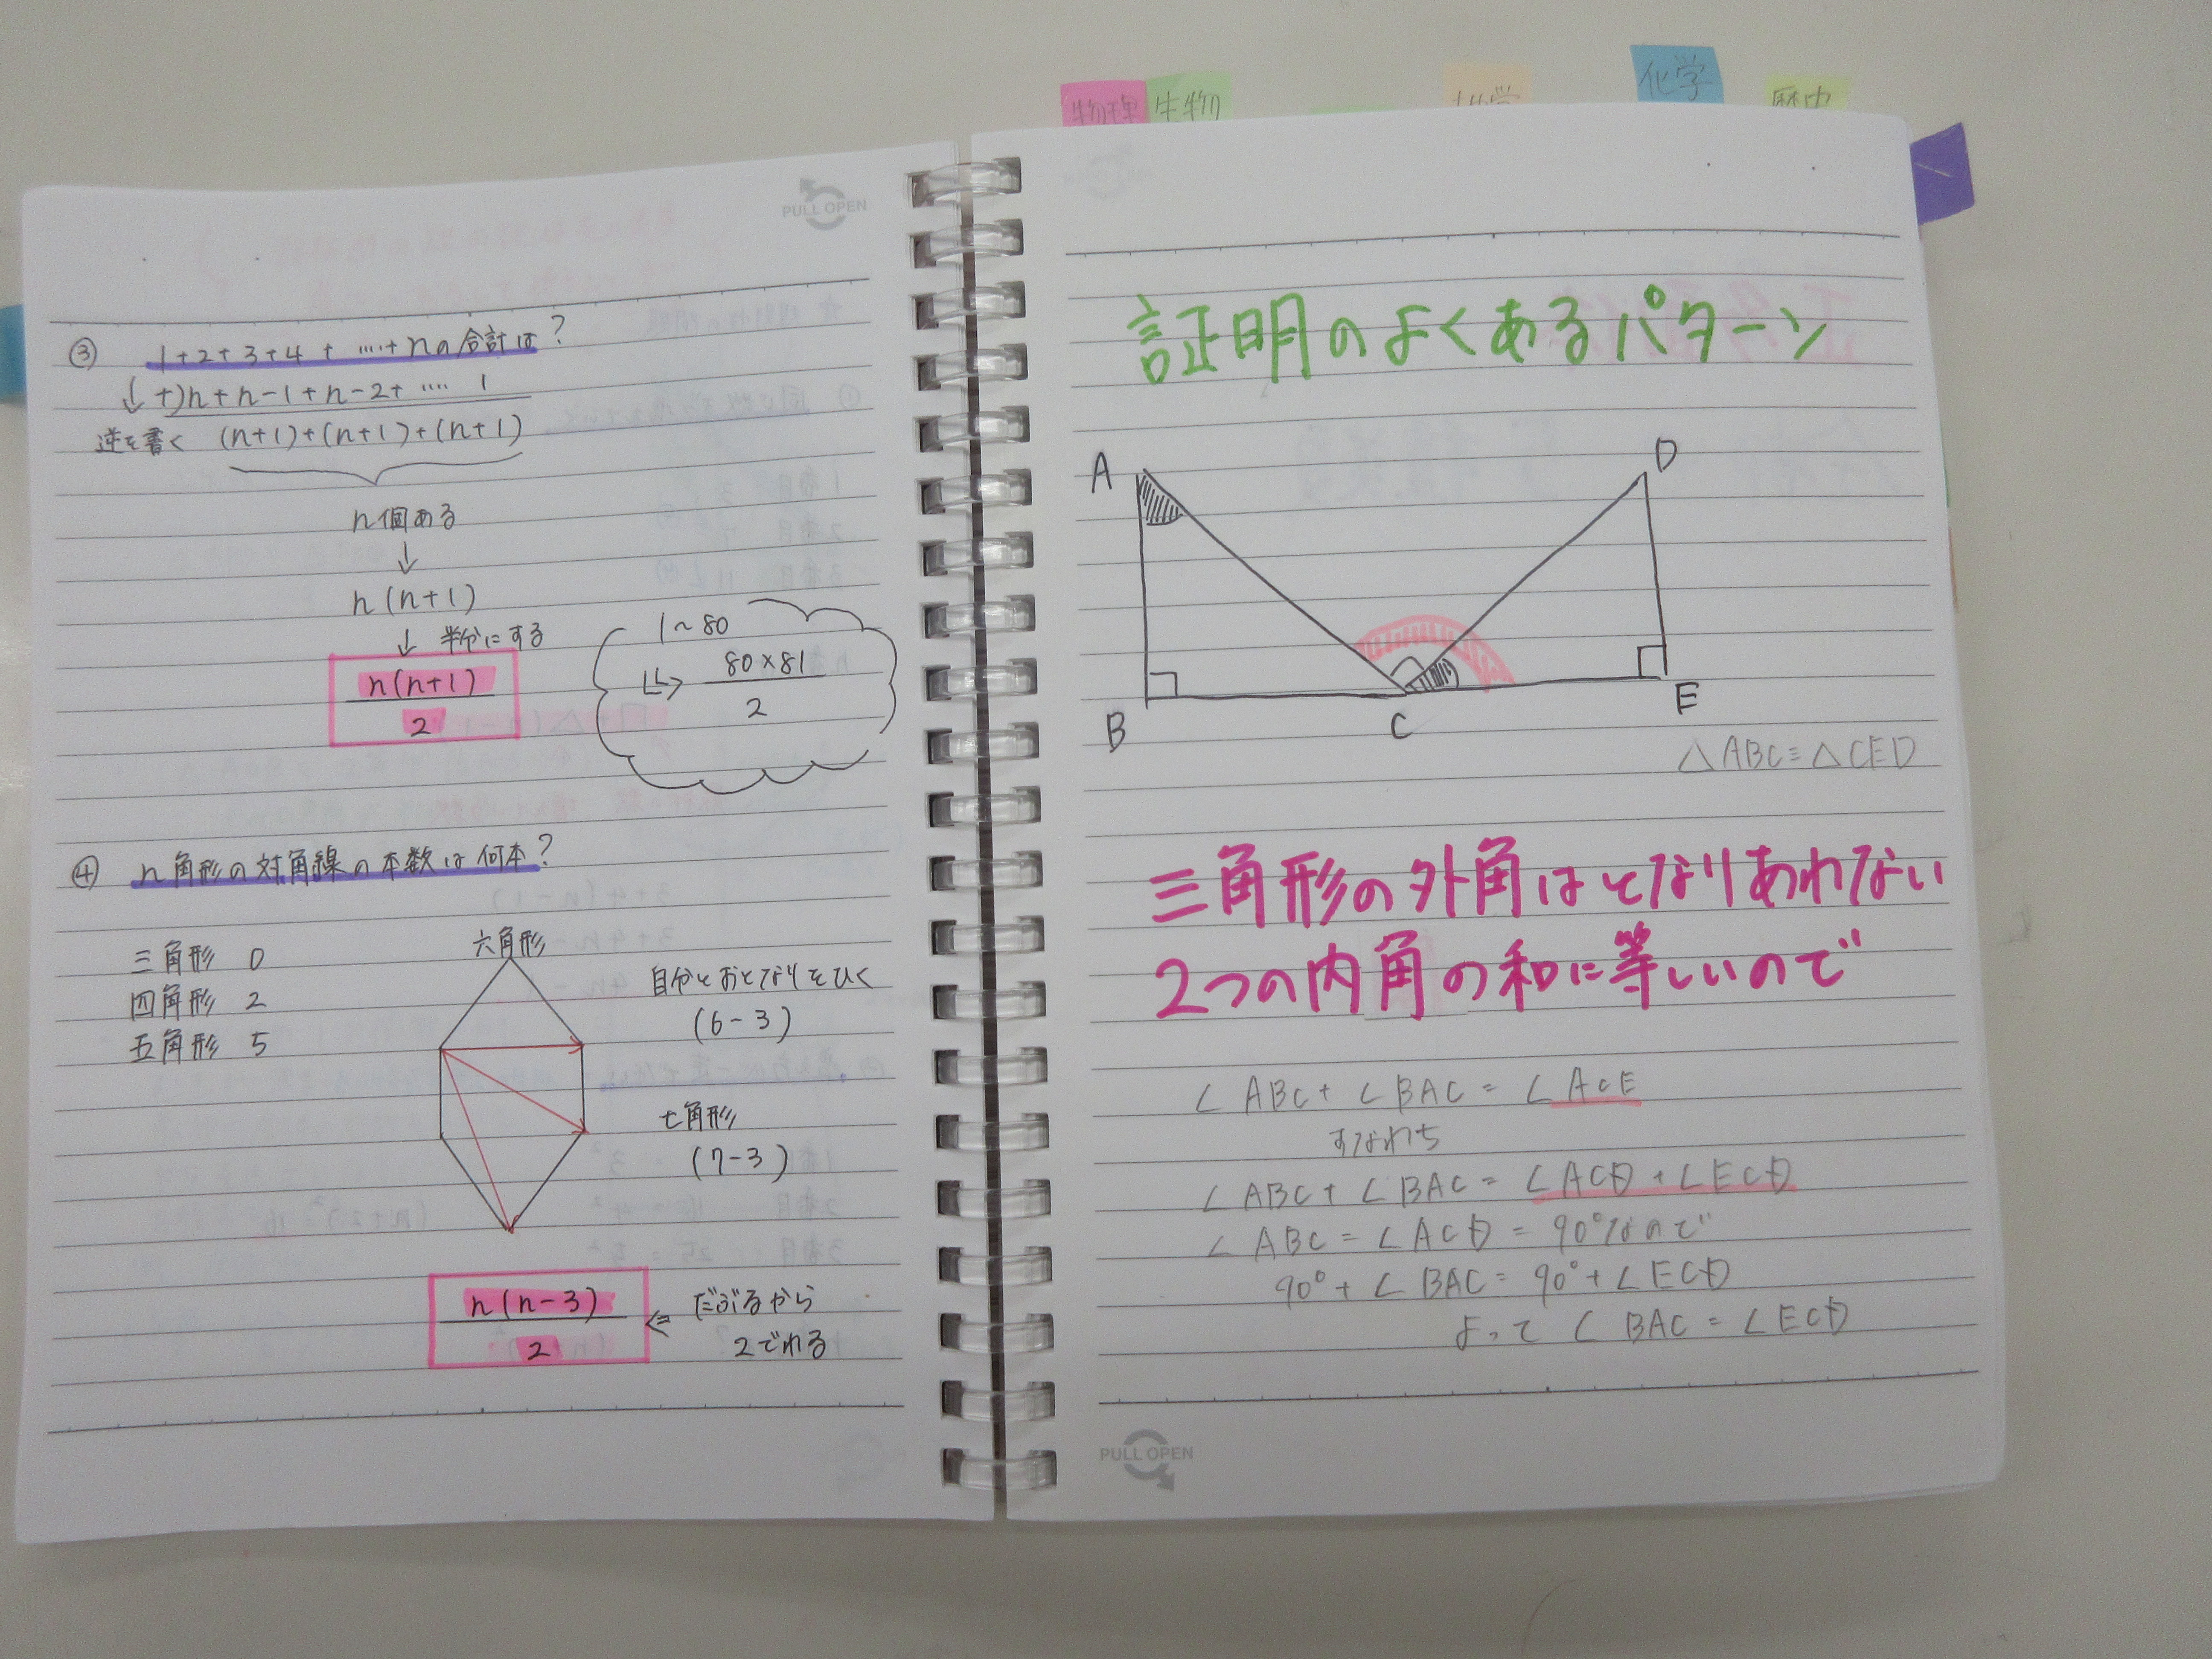 物理
生物
化学
歴史
PULL OPEN
③ 1+2+3+4+……+nの合計は?
↓ +)n+n-1+n-2+…… 1
逆を書く (n+1)+(n+1)+(n+1)
n個ある
↓
n(n+1)
↓ 半分にする
n(n+1)
2
1~80
↳ 80×81
2
④ n角形の対角線の本数は何本?
三角形 0
四角形 2
五角形 5
六角形
自分とおとなりをひく
(6-3)
七角形
(7-3)
n(n-3)
2
⇐ だぶるから
2でわる
証明のよくあるパターン
A
D
B
C
E
△ABC≡△CED
三角形の外角はとなりあわない
2つの内角の和に等しいので
∠ABC+∠BAC=∠ACE
すなわち
∠ABC+∠BAC=∠ACD+∠ECD
∠ABC=∠ACD=90°なので
90°+∠BAC=90°+∠ECD
よって ∠BAC=∠ECD
PULL OPEN